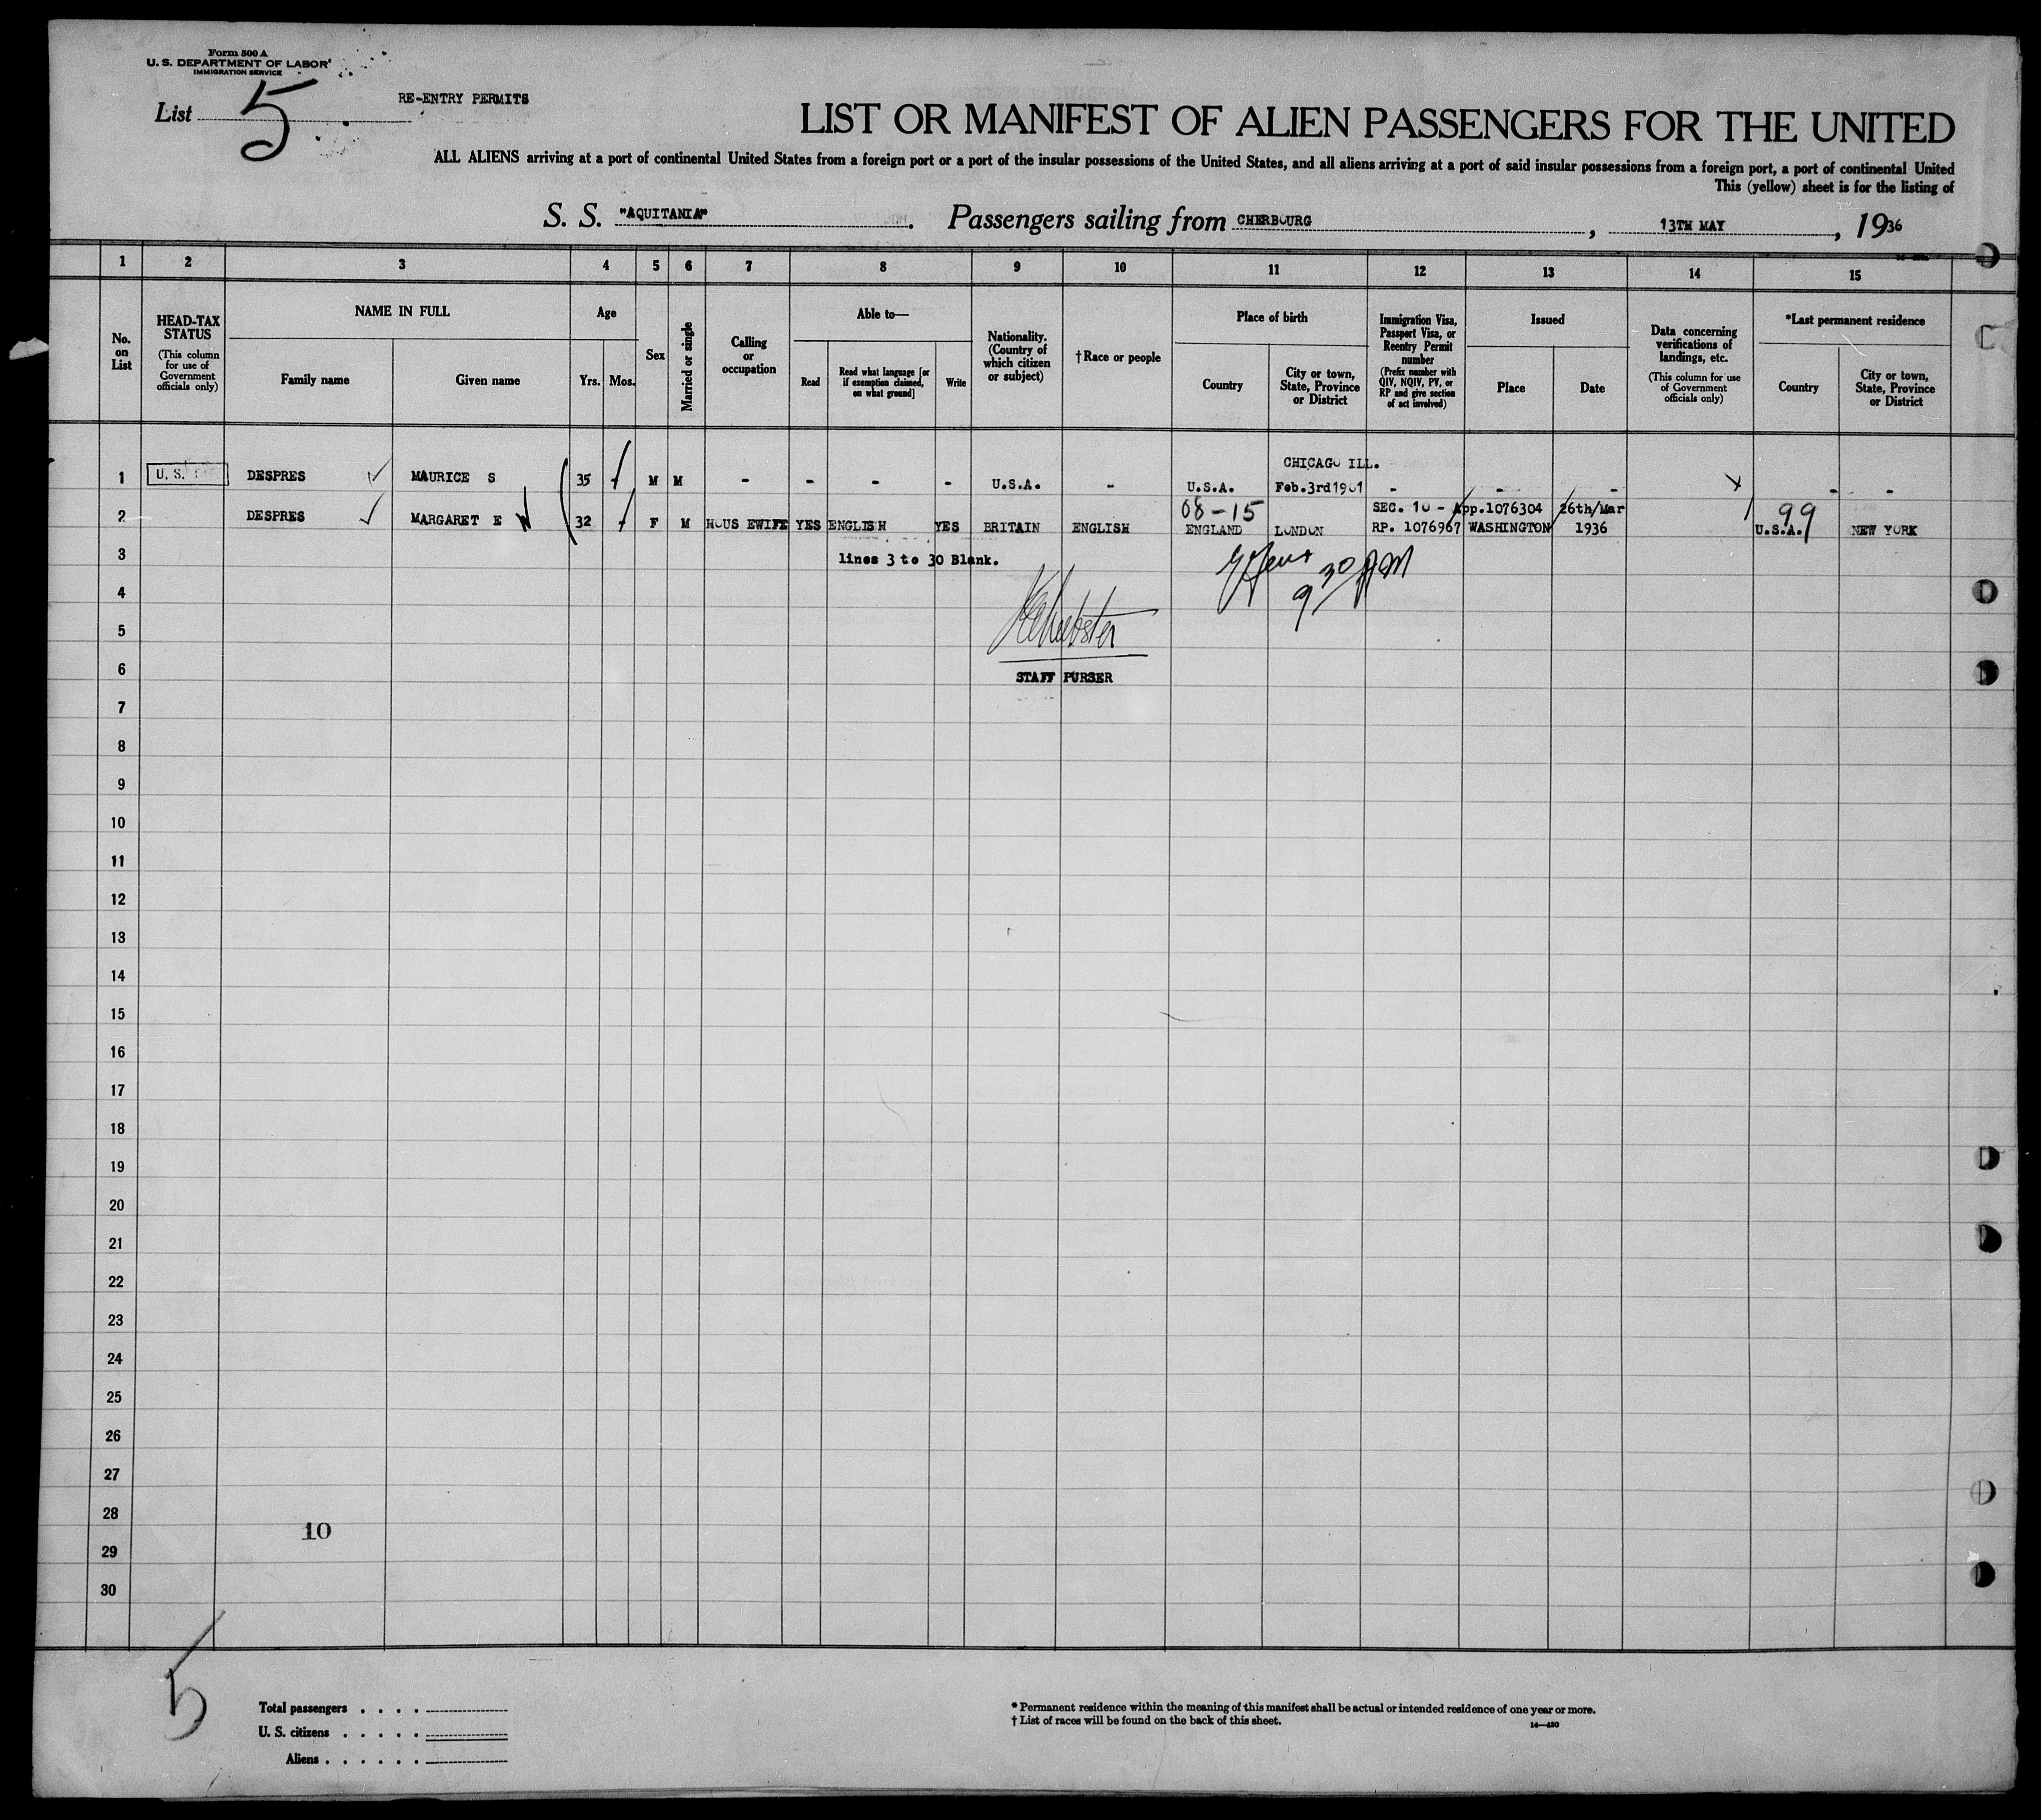 Form 500 A
U. S. DEPARTMENT OF LABOR
IMMIGRATION SERVICE
List 5
RE-ENTRY PERMITS
LIST OR MANIFEST OF ALIEN PASSENGERS FOR THE UNITED
ALL ALIENS arriving at a port of continental United States from a foreign port or a port of the insular possessions of the United States, and all aliens arriving at a port of said insular possessions from a foreign port, a port of continental United
This (yellow) sheet is for the listing of
S. S. "AQUITANIA". Passengers sailing from CHERBOURG, 13TH MAY, 1936
1 2 3 4 5 6 7 8 9 10 11 12 13 14 15
No. on List
HEAD-TAX STATUS (This column for use of Government officials only)
NAME IN FULL
Family name
Given name
Age
Yrs.
Mos.
Sex
Married or single
Calling or occupation
Able to—
Read
Read what language [or if exemption claimed, on what ground]
Write
Nationality. (Country of which citizen or subject)
†Race or people
Place of birth
Country
City or town, State, Province or District
Immigration Visa, Passport Visa, or Reentry Permit number (Prefix number with QIV, NQIV, PV, or RP and give section of act involved)
Issued
Place
Date
Data concerning verifications of landings, etc. (This column for use of Government officials only)
*Last permanent residence
Country
City or town, State, Province or District
CHICAGO ILL.
1 U. S. DESPRES MAURICE S 35 - M M - - - - U.S.A. - U.S.A. Feb.3rd1901 - - - - -
08-15 SEC. 10 - App.1076304 26th/Mar 99
2 DESPRES MARGARET E 32 - F M HOUSEWIFE YES ENGLISH YES BRITAIN ENGLISH ENGLAND LONDON RP. 1076967 WASHINGTON 1936 U.S.A. NEW YORK
3 lines 3 to 30 Blank.
9 30 AM
4
5
6 STAFF PURSER
7
8
9
10
11
12
13
14
15
16
17
18
19
20
21
22
23
24
25
26
27
28
10
29
30
5
Total passengers . . . .
U. S. citizens . . . . .
Aliens . . . . . .
* Permanent residence within the meaning of this manifest shall be actual or intended residence of one year or more.
† List of races will be found on the back of this sheet.
14—430